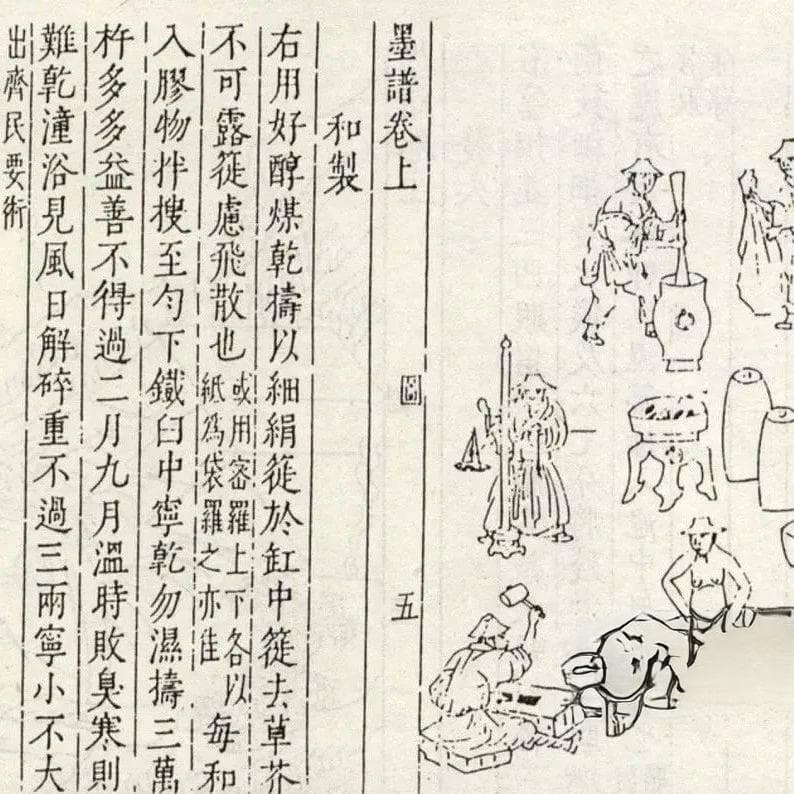 墨譜卷上 圖 五
和製
右用好醇煤乾擣以細絹簁於缸中簁去草芥
不可露簁慮飛散也
或用密羅上下各以
紙爲袋羅之亦佳
每和
入膠物拌搜至勻下鐵臼中寧乾勿濕擣三萬
杵多多益善不得過二月九月溫時敗臭寒則
難乾潼浴見風日解碎重不過三兩寧小不大
出齊民要術